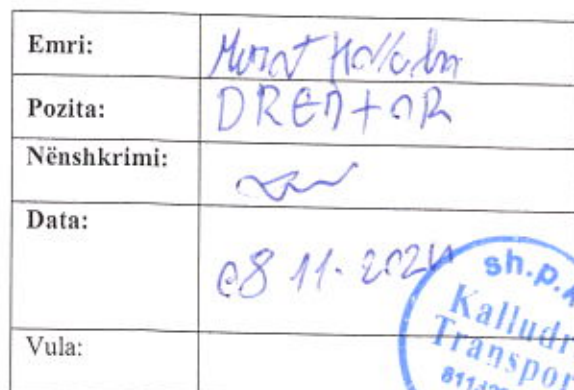 Emri: Murat
Pozita: DREJTOR
Nënshkrimi:
Data: 08 11. 2024
Vula:
sh.p.k
Kalludr
Transpor